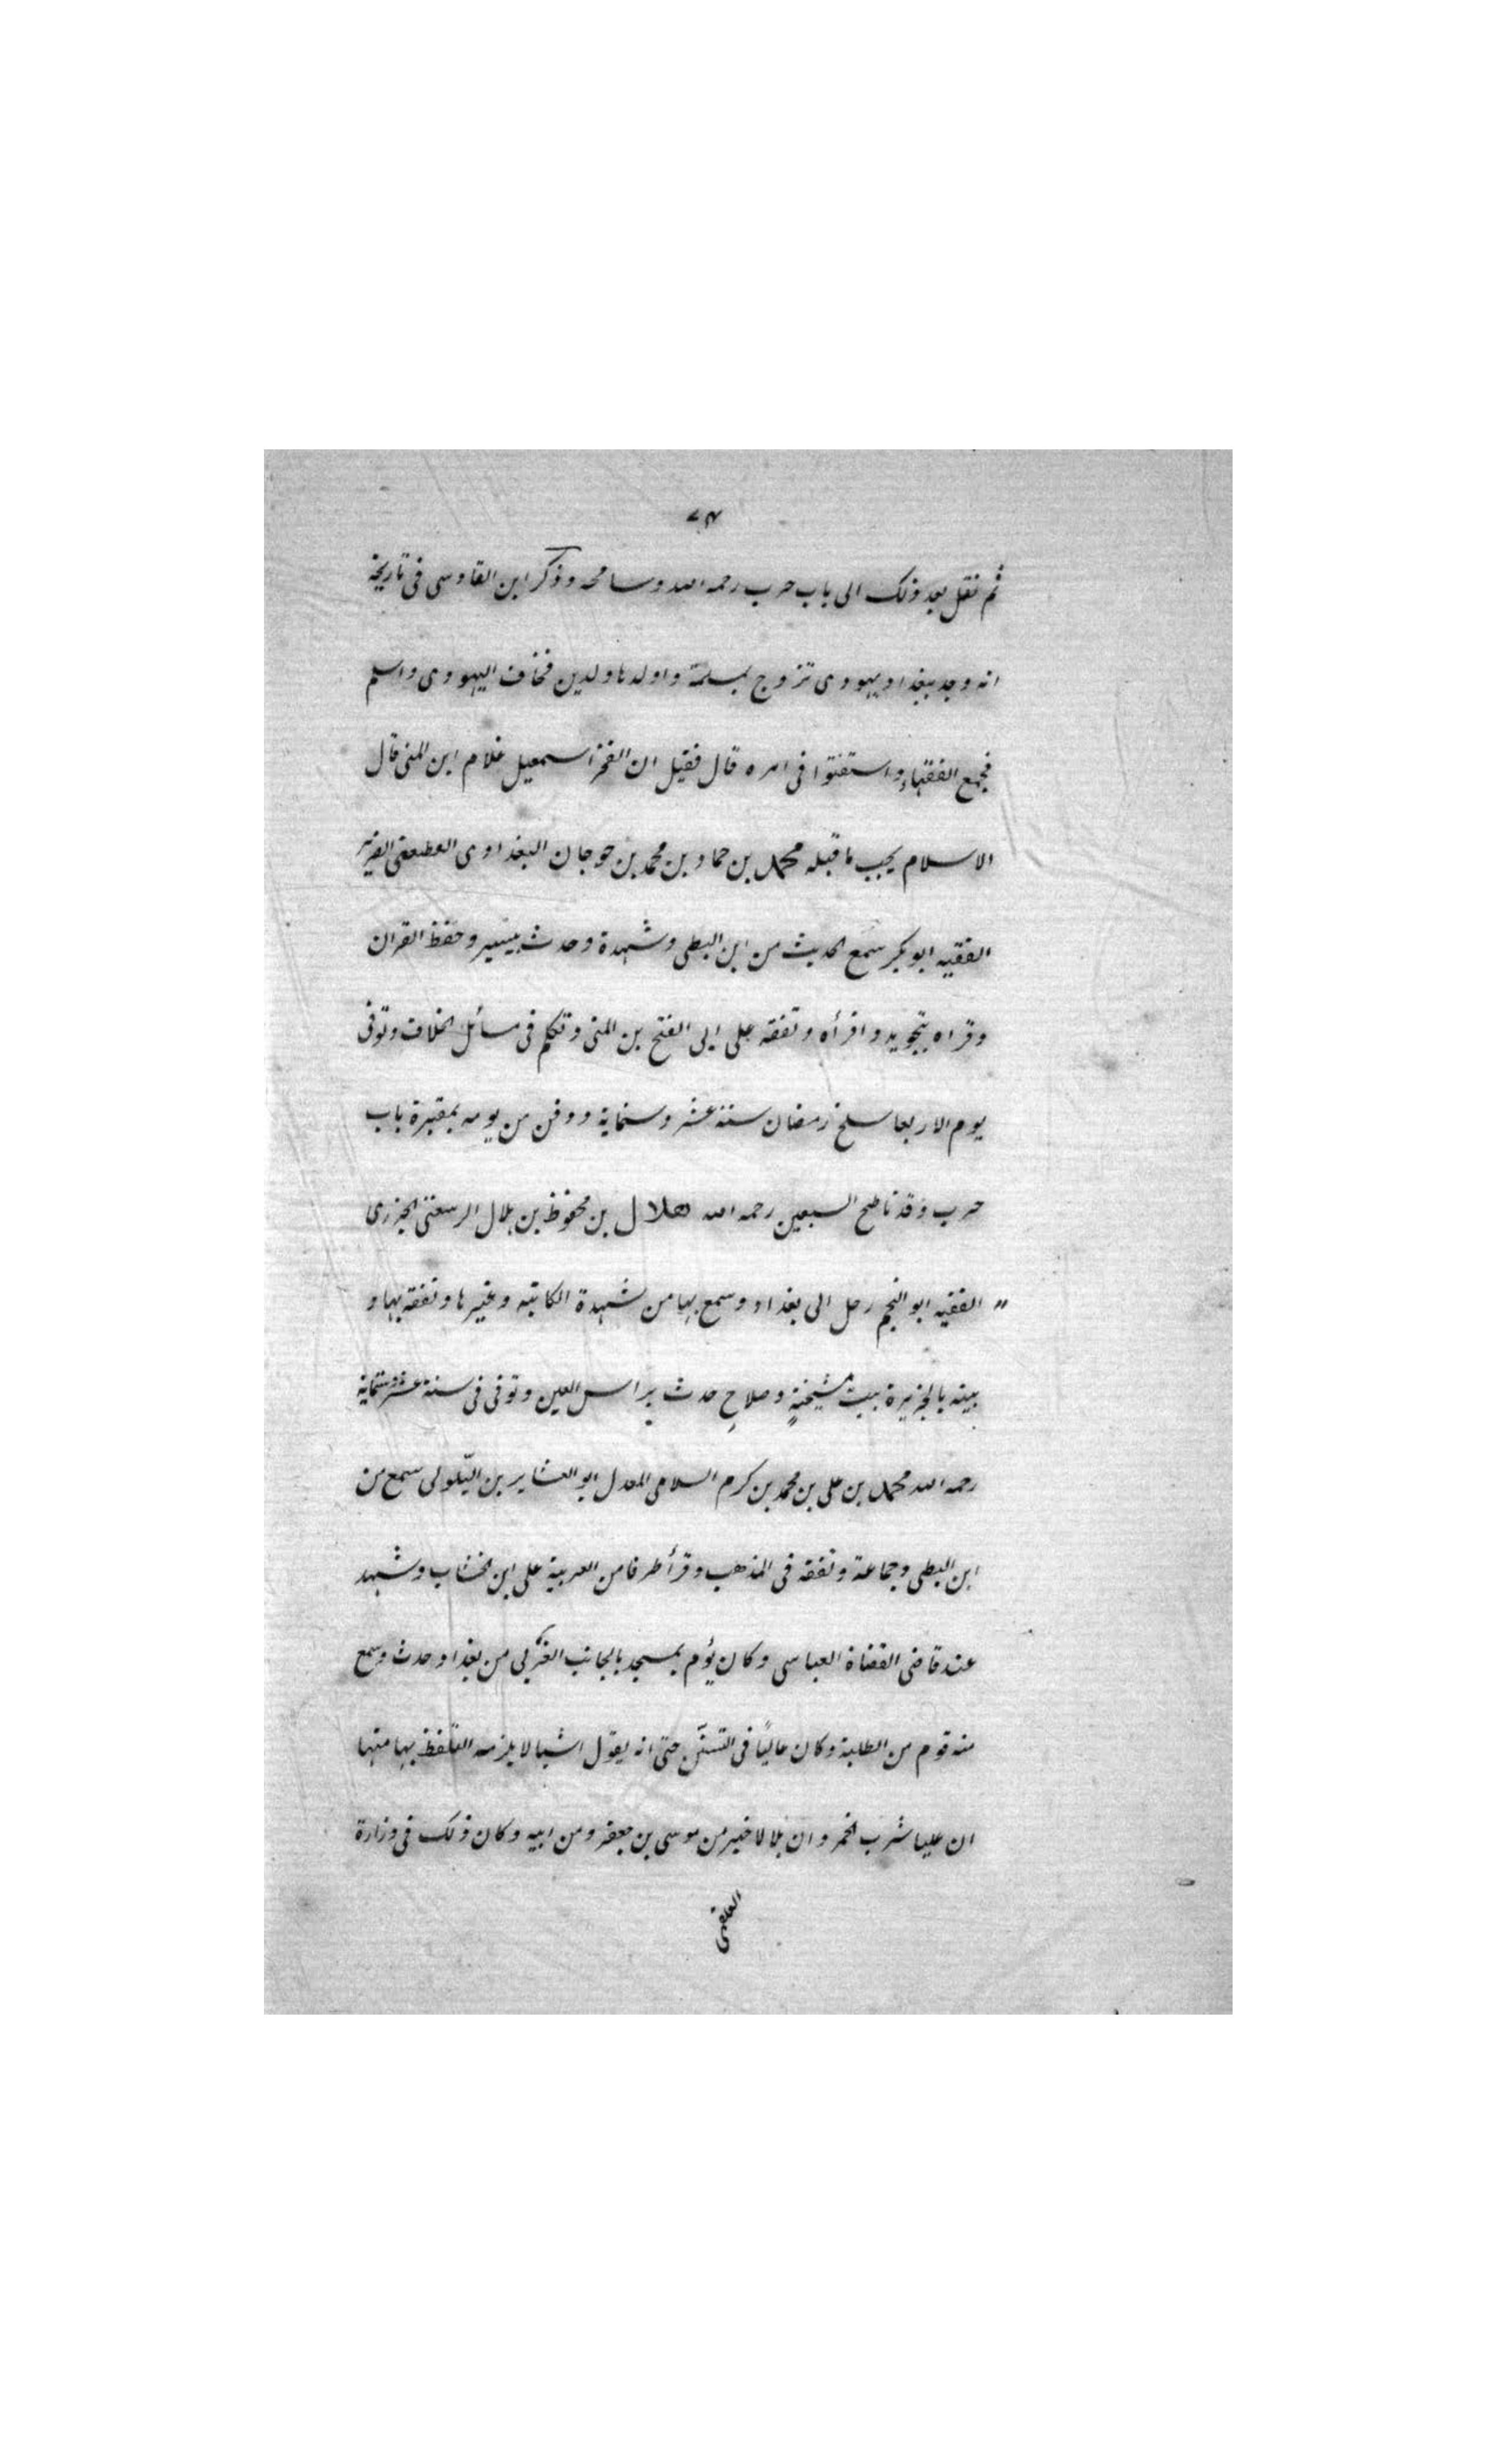 ثم نقل بعد ذلك الى باب حرب رحمه الله وسامحه وذكر ابن القادسى فى تاريخه
انه وجد ببغداد يهودى تزوج بمسلمة واولدها ولدين فخاف اليهودى واسلم
فجمع الفقهاء واستفتوا فى امره قال فقيل ان الفخر اسمعيل غلام ابن المنى قال
الاسلام يجب ما قبله محمد بن حماد بن محمد بن جوجان البغدادى القطيعى الضرير
الفقيه ابو بكر سمع الحديث من ابن البطى وشهدة وحدث بيسير وحفظ القران
وقراه بتجويد واقرأه وتفقه على ابى الفتح بن المنى وتكلم فى مسائل الخلاف وتوفى
يوم الاربعا سلخ رمضان سنة عشر وستماية ودفن من يومه بمقبرة باب
حرب وقد ناطح السبعين رحمه الله هلال بن محفوظ بن هلال الرسعنى الجزرى
الفقيه ابو النجم رحل الى بغداد وسمع بها من شهدة الكاتبه وغيرها وتفقه بها و
بيته بالجزيرة بيت مشيخةٍ وصلاحٍ حدث براس العين وتوفى فى سنة عشر وستماية
رحمه الله محمد بن على بن محمد بن كرم السلامى المعدل ابو العشاير بن التّلولى سمع من
ابن البطى وجماعة وتفقه فى المذهب وقرأ طرفا من العربية على ابن الخشاب وشهد
عند قاضى القضاة العباسى وكان يؤم بمسجد بالجانب الغربى من بغداد وحدث وسمع
منه قوم من الطلبة وكان عاليًا فى التسنّن حتى انه يقول اشيا لا يلزمه التلفظ بها منها
ان عليا شرب الخمر وان بلالا خير من موسى بن جعفر ومن ابيه وكان ذلك فى وزارة
القمى